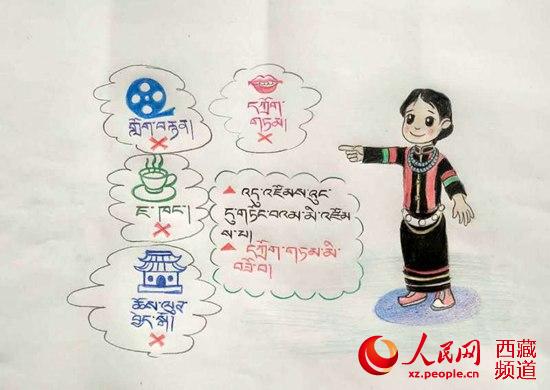 གློག་བརྙན།
དཀྲོག་
གཏམ།
ཇ་ཁང་།
འདུ་འཛོམས་ཉུང་
དུ་གཏོང་བའམ་མི་འཛོམ
ས་པ།
དཀྲོག་གཏམ་མི་
བཟོ་བ།
人民网 西藏
频道
xz.people.cn